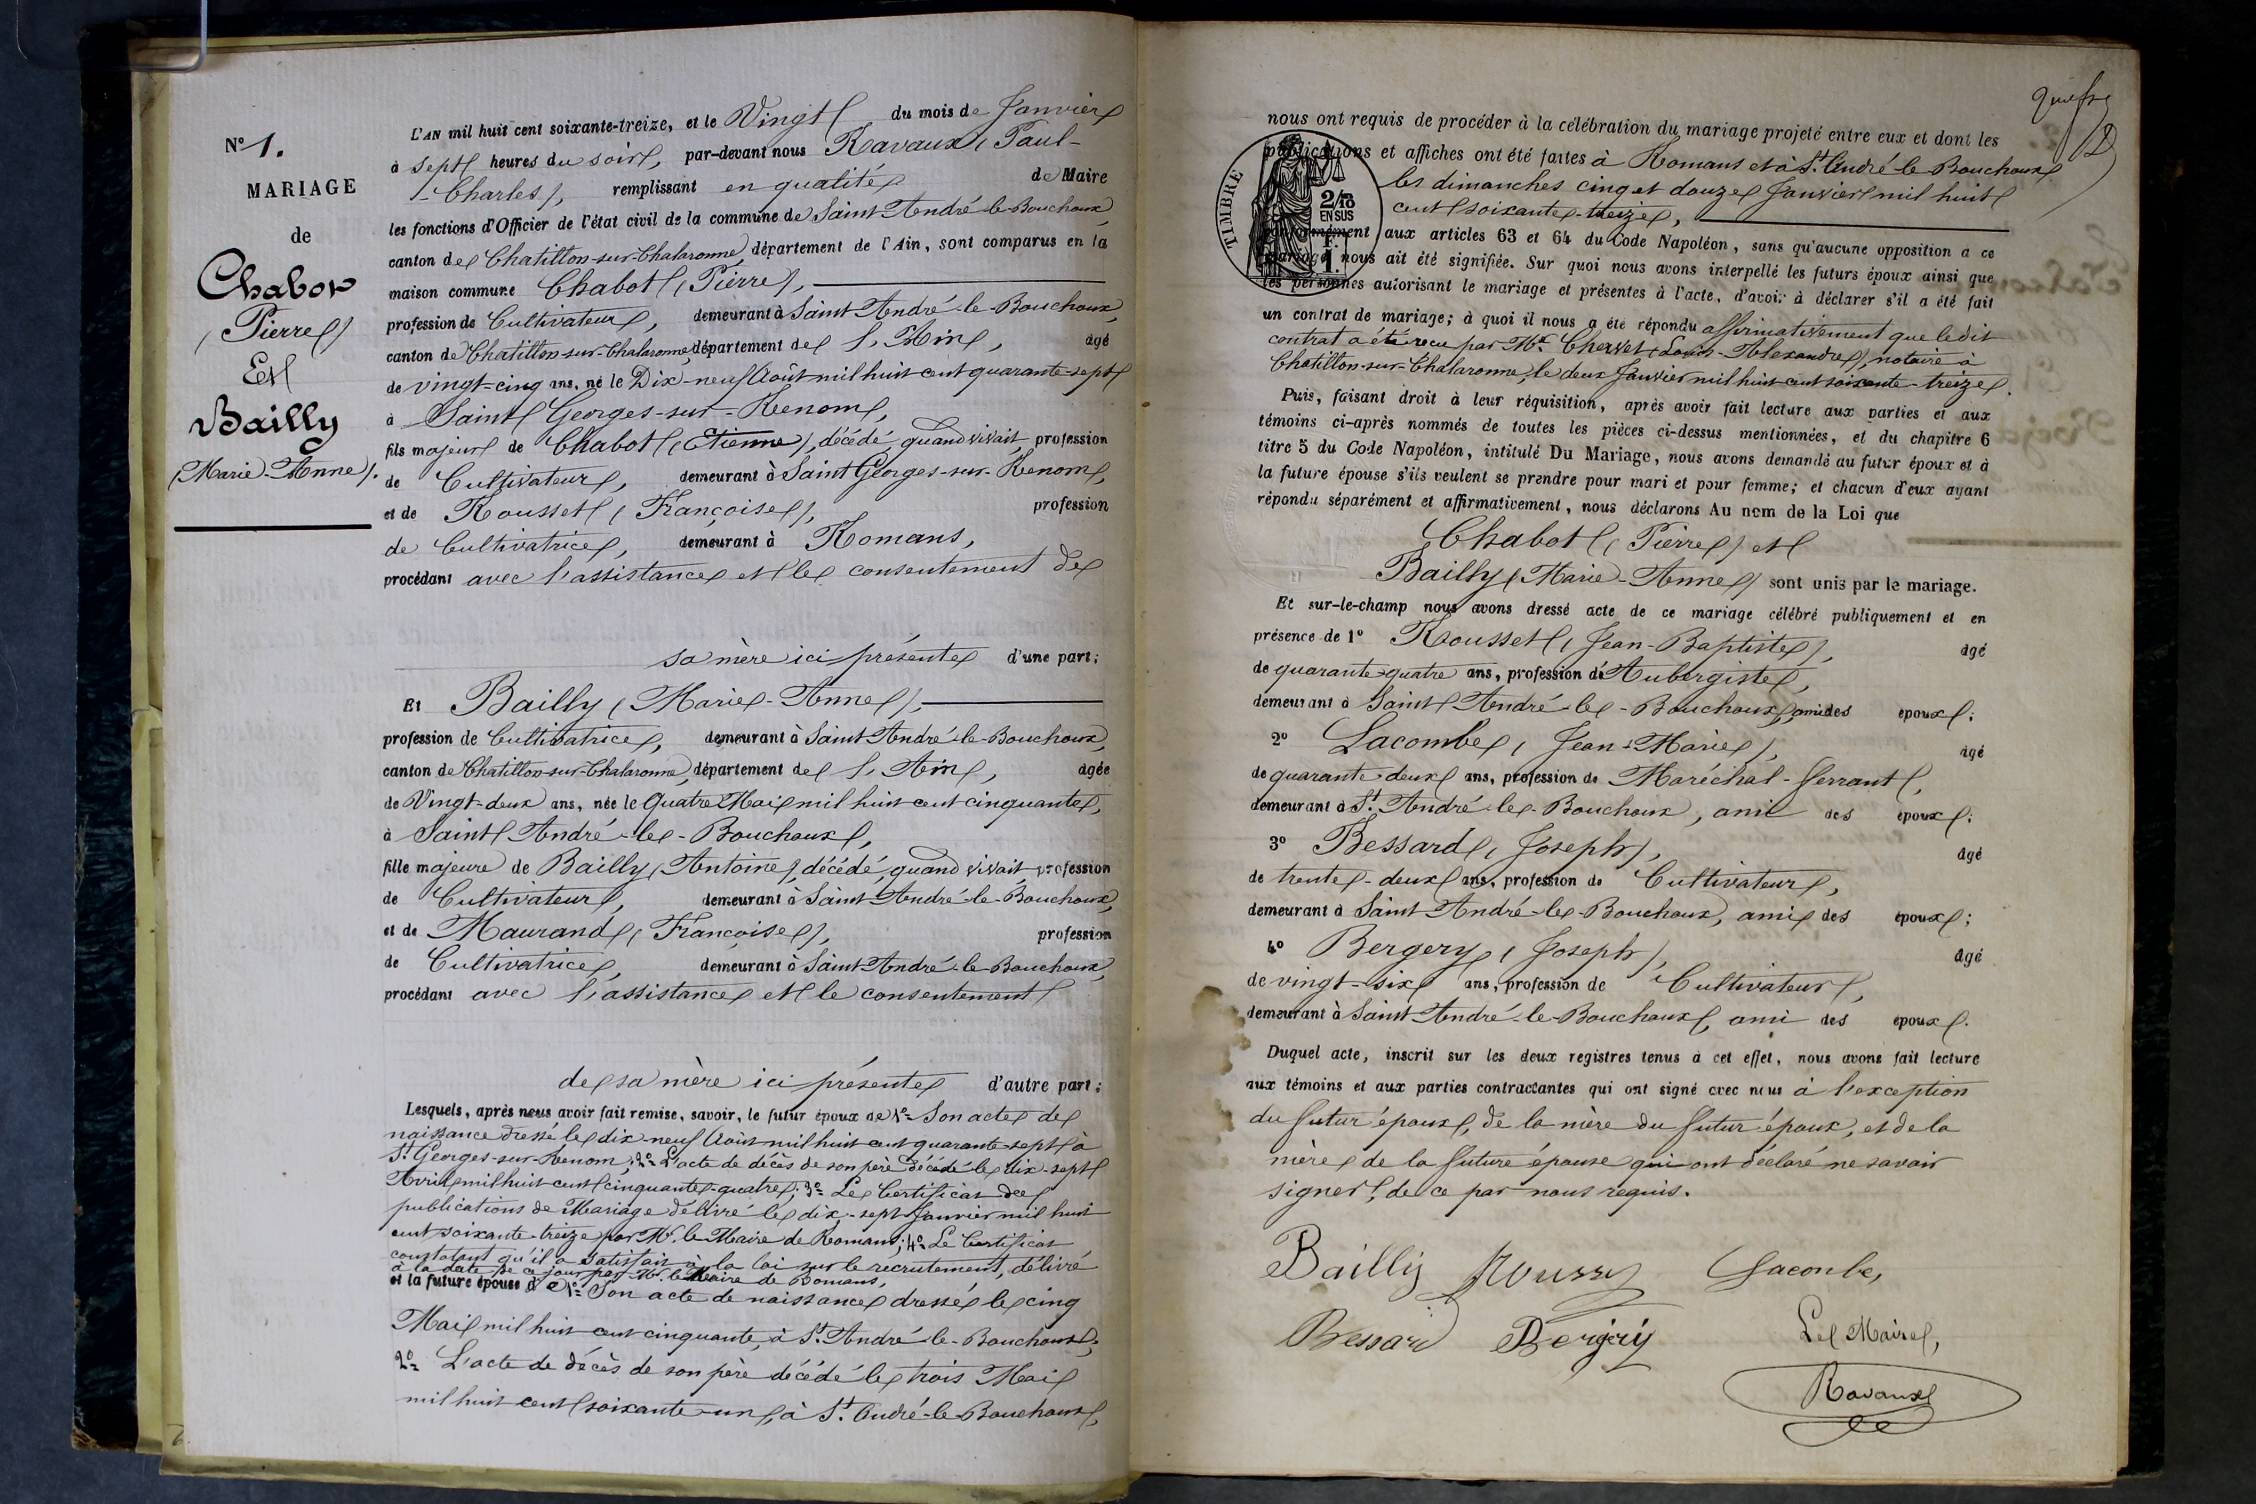 N° 1.
MARIAGE
de
Chabot
(Pierre)
Et
Bailly
(Marie-Anne).
L'AN mil huit cent soixante-treize, et le Vingt du mois de Janvier
à sept heures du soir, par-devant nous Ravaux (Paul-
-Charles), remplissant en qualité de Maire
les fonctions d'Officier de l'état civil de la commune de Saint André-le-Bouchoux,
canton de Chatillon-sur-Chalaronne, département de l'Ain, sont comparus en la
maison commune Chabot (Pierre),
profession de Cultivateur, demeurant à Saint André-le-Bouchoux,
canton de Chatillon-sur-Chalaronne, département de l'Ain, âgé
de vingt-cinq ans, né le Dix-neuf Août mil huit cent quarante-sept
à Saint Georges-sur-Renom,
fils majeur de Chabot (Etienne), décédé, quand vivait, profession
de Cultivateur, demeurant à Saint Georges-sur-Renom,
et de Rousset (Françoise), profession
de Cultivatrice, demeurant à Romans,
procédant avec l'assistance et le consentement de
sa mère ici présente d'une part;
Et Bailly (Marie-Anne),
profession de Cultivatrice, demeurant à Saint André-le-Bouchoux,
canton de Chatillon-sur-Chalaronne, département de l'Ain, âgée
de Vingt-deux ans, née le Quatre Mai mil huit cent cinquante,
à Saint André-le-Bouchoux,
fille majeure de Bailly (Antoine), décédé, quand vivait, profession
de Cultivateur, demeurant à Saint André-le-Bouchoux,
et de Maurand (Françoise), profession
de Cultivatrice, demeurant à Saint André-le-Bouchoux,
procédant avec l'assistance et le consentement
de sa mère ici présente d'autre part;
Lesquels, après nous avoir fait remise, savoir, le futur époux de 1° Son acte de
naissance dressé le dix-neuf Août mil huit cent quarante-sept à
St Georges-sur-Renom; 2° L'acte de décès de son père décédé le dix-sept
Avril mil huit cent cinquante-quatre; 3° Le Certificat de
publications de Mariage délivré le dix-sept Janvier mil huit
cent soixante-treize par Mr. le Maire de Romans; 4° Le Certificat
constatant qu'il a satisfait à la loi sur le recrutement, délivré
à la date de ce jour par Mr. le Maire de Romans,
et la future épouse de 1° Son acte de naissance dressé le cinq
Mai mil huit cent cinquante, à St. André-le-Bouchoux;
2° L'acte de décès de son père décédé le trois Mai
mil huit cent soixante-un, à St. André-le-Bouchoux,
2
nous ont requis de procéder à la célébration du mariage projeté entre eux et dont les
publications et affiches ont été faites à Romans et à St. André-le-Bouchoux
les dimanches cinq et douze Janvier mil huit
cent soixante-treize,
TIMBRE
2/10
EN SUS
F.
1.
conformément aux articles 63 et 64 du Code Napoléon, sans qu'aucune opposition a ce
mariage nous ait été signifiée. Sur quoi nous avons interpellé les futurs époux ainsi que
les personnes autorisant le mariage et présentes à l'acte, d'avoir à déclarer s'il a été fait
un contrat de mariage; à quoi il nous a été répondu affirmativement que ledit
contrat a été reçu par Me. Chervet (Louis-Alexandre), notaire à
Chatillon-sur-Chalaronne, le deux Janvier mil huit cent soixante-treize.
Puis, faisant droit à leur réquisition, après avoir fait lecture aux parties et aux
témoins ci-après nommés de toutes les pièces ci-dessus mentionnées, et du chapitre 6
titre 5 du Code Napoléon, intitulé Du Mariage, nous avons demandé au futur époux et à
la future épouse s'ils veulent se prendre pour mari et pour femme; et chacun d'eux ayant
répondu séparément et affirmativement, nous déclarons Au nom de la Loi que
Chabot (Pierre) et
Bailly (Marie-Anne) sont unis par le mariage.
Et sur-le-champ nous avons dressé acte de ce mariage célébré publiquement et en
présence de 1° Rousset (Jean-Baptiste), âgé
de quarante-quatre ans, profession d'Aubergiste,
demeurant à Saint André-le-Bouchoux, ami des époux;
2° Lacombe (Jean-Marie), âgé
de quarante-deux ans, profession de Maréchal-ferrant,
demeurant à St. André-le-Bouchoux, ami des époux;
3° Bessard (Joseph), âgé
de trente-deux ans, profession de Cultivateur,
demeurant à Saint André-le-Bouchoux, ami des époux;
4° Bergery (Joseph), âgé
de vingt-six ans, profession de Cultivateur,
demeurant à Saint André-le-Bouchoux, ami des époux.
Duquel acte, inscrit sur les deux registres tenus à cet effet, nous avons fait lecture
aux témoins et aux parties contractantes qui ont signé avec nous à l'exception
du futur époux, de la mère du futur époux, et de la
mère de la future épouse qui ont déclaré ne savoir
signer, de ce par nous requis.
Bailly Lacombe,
Bessard Bergery Le Maire,
Ravaux